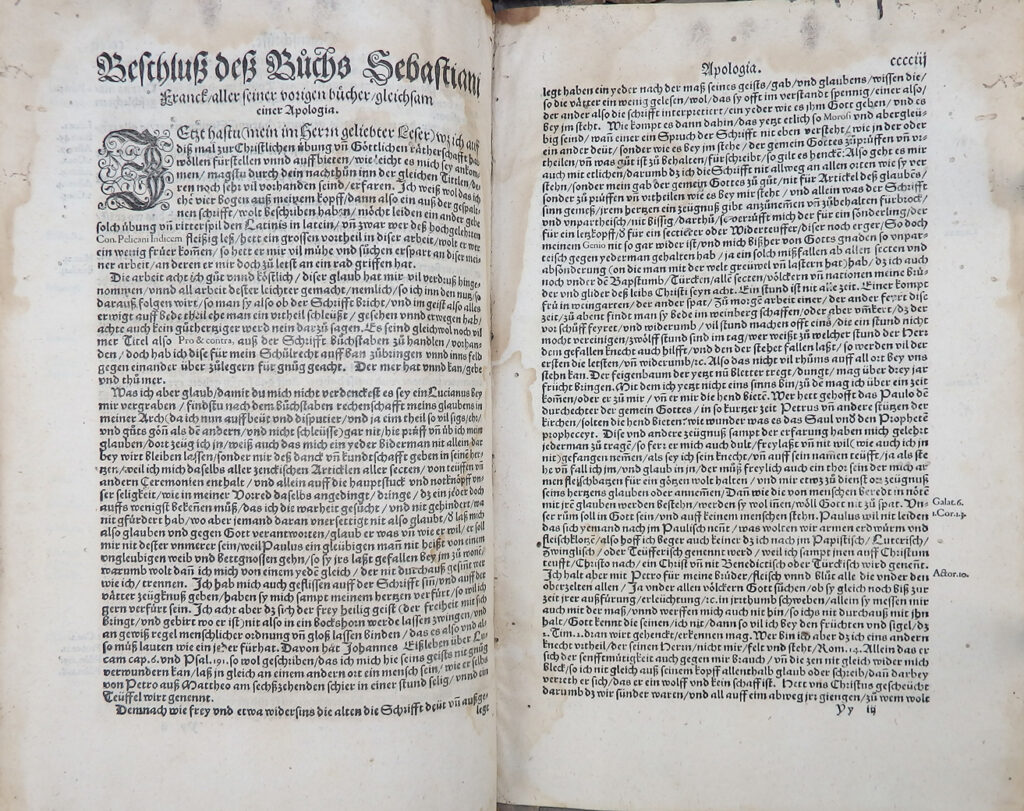 Beschluß deß Bůchs Sebastiani
Franck/aller seiner vorigen bücher/gleichsam
einer Apologia.
JEtzt hastu (mein im Herrn geliebter Leser) wz ich auff
diß mal zur Christlichen übung vñ Göttlichen rätherschafft hab
wöllen fürstellen vnnd auff bieten/wie leicht es mich sey ankom-
men/magstu durch dein nachthůn inn der gleichen Tittlen/de-
ren noch sehr vil vorhanden seind/erfaren. Ich weiß wol das ich
ehe vier bogen auß meinem kopff/dann also ein auß der gespalt-
nen schrifft/wolt beschriben haben/möcht leiden ein ander hebe
solch übung vñ ritterspil den Latinis in latein/vñ zwar wer deß hochgelehrten
Con. Pelicani Indicem fleißig leß/hett ein grossen vortheil in diser arbeit/wolt er wer
ein wenig früer kom̃en/so hett er mir vil mühe vnd sůchen erspart an diser mei-
ner arbeit/an deren er mir doch zů letst an ein rad griffen hat.
Die arbeit acht ich gůt vnnd köstlich/diser glaub hat mir vil verdruß hinge-
nommen/vnnd all arbeit dester leichter gemacht/nemlich/so ich inn den nutz/so
darauß folgen wirt/so man sy also ob der Schrifft bricht/vnd im geist also alles
erwigt auff bede theil ehe man ein vrtheil schleüßt/gesehen vnnd erwegen hab/
achte auch kein gůthertziger werd nein dar zů sagen. Es seind gleichwol noch vil
mer Titel also Pro & contra, auß der Schrifft bůchstaben zů handlen/vorhan-
den/doch hab ich dise für mein Schůlrecht auff ban zůbringen vnnd inns feld
gegen einander über zůlegern für gnůg geacht. Der mer hat vnnd kan/gebe
vnd thů mer.
Was ich aber glaub/damit du mich nicht verdenckest es sey ein Lucianus bey
mir vergraben/findstu nach dem bůchstaben rechenschafft meins glaubens in
meiner Arch/da ich nun auffbeüt vnd disputier/vnd ja ein theil so vil sigs/ehr/
vnd gůts gönn als dẽ andern/vnd nicht schleüsse/gar nit/hie prüff vñ üb ich mein
glauben/dort zeüg ich jn/weiß auch das mich ein yeder Biderman nit allein dar
bey wirt bleiben lassen/sonder mir deß danck vñ kundtschafft geben in seine her-
tzen/weil ich mich daselbs aller zenckischen Articklen aller secten/von teüffen vñ
andern Ceremonien enthalt/vnd allein auff die hauptstuck vnd notknöpff vn-
ser seligkeit/wie in meiner Vorred daselbs angedingt/dringe/dz ein jeder doch
auffs wenigst bekeñen můß/das ich die warheit gesůcht/vnd nit gehindert/wa
nit gfürdert hab/wo aber jemand daran vnersettigt nit also glaubt/d̃ laß mich
also glauben vnd gegen Gott verantworten/glaub er was vñ wie er wil/er soll
mir nit dester vnmerer sein/weil Paulus ein glëubigen man nit heißt von einem
vngleubigen weib vnd Bettgnossen gehn/so sy jrs laßt gefallen bey jm zů wonẽ/
warumb wolt dañ ich mich von einem yedẽ gleich/der nit durchauß gesinnet wer
wie ich/trennen. Ich hab mich auch geflissen auff der Schrifft sinn/vnd auff der
vätter zeügknuß geben/haben sy mich sampt meinem hertzen verfürt/so wil ich
gern verfürt sein. Ich acht aber dz sich der frey heilig geist (der freiheit mit sich
bringt/vnd gebirt wo er ist) nit also in ein bockshorn werde lassen zwingen/vnd
an gewiß regel menschlicher ordnung vñ gloß lassen binden/das es also vnd ab
so můß lauten wie ein jeder fürhat. Davon hat Johannes Eißleben über Lu-
cam cap. 6. vnd Psal. 191. so wol geschriben/das ich mich hie seins geists nit gnůg
verwundern kan/laß jn gleich an einem andern ort ein mensch sein/wie er selbs
von Petro auß Mattheo am sechßzehenden schier in einer stund selig/vnnd ein
Teüffel wirt genennt.
Demnach wie frey vnd etwa widersins die alten die Schrifft deüt vñ außge-
legt
Apologia.
cccciij
legt haben ein yeder nach der maß seines geists/gab/vnd glaubens/wissen die/
so die vätter ein wenig gelesen/wol/das sy offt im verstandt spennig/einer also/
der ander also die schrifft interpretiert/ein yeder wie es jhm Gott geben/vnd es
bey jm steht. Wie kompt es dann dahin/das yetzt etlich so Morosi vnd abergleü-
big seind/wañ einer ein Spruch der Schrifft nit eben versteht/wie jn der oder
ein ander deüt/sonder wie es bey jm stehe/der gemein Gottes zůprüffen vñ vr-
theilen/vñ was gůt ist zů behalten/fürschreibt/so gilt es hencke: Also geht es mir
auch mit etlichen/darumb dz ich die Schrifft nit allweg an allen orten wie sy ver-
stehn/sonder mein gab der gemein Gottes zů gůt/nit für Artickel deß glaubẽs/
sonder zů prüffen vñ vrtheilen wie es bey mir steht/vnd allein was der Schrifft
sinn gemeß/jrem hertzen ein zeügnuß gibt anzůnemẽ vñ zůbehalten fürbrock/
vnd vnpartheisch/nit bissig/darthů/se verrüfft mich der für ein sönderling/der
für ein letzkopff/d̃ für ein sectierer oder Widerteuffer/diser noch erger/So doch
meinem Genio nit so gar wider ist/vnd mich bißher von Gottes gnaden so vnpar-
teisch gegen yederman gehalten hab/ja ein solch mißfallen ab allen secten vnd
absönderung (on die man mit der welt greüwel vñ lastern hat) hab/dz ich auch
noch vnder dẽ Bapstumb/Türcken/alle secten/völckern vñ nationen meine brü-
der vnd glider deß leibs Christi seyn acht. Ein stund ist nit alle zeit. Einer kompt
frü in weingarten/der ander spat/Zů morgẽ arbeit einer/der ander feyrt dise
zeit/zů abent findt man sy bede im weinberg schaffen/oder aber vm̃kert/dz der
vor schüff feyret/vnd widerumb/vil stund machen offt eins/die ein stund nicht
mocht vereinigen/zwölff stund sind im tag/wer weißt zů welcher stund der Herr
dem gefallen knecht auch hilfft/vnd den der stehet fallen laßt/so werden vil der
ersten die letsten/vñ widerumb/ꝛc. Also das nicht vil rhůms auff all ort bey vns
stehn kan. Der feigenbaum der yetzt nu bletter tregt/dungt/mag über drey jar
frücht bringen. Mit dem ich yetzt nicht eins sinns bin/zů dẽ mag ich über ein zeit
kom̃en/oder er zů mir/vñ er mir die hend bietẽ. Wer hett gehofft das Paulo dẽ
durchechter der gemein Gottes/in so kurtzer zeit Petrus vñ andere stützen der
kirchen/solten die hend bieten/wie wunder was es das Saul vnd den Prophetẽ
propheceyt. Dise vnd andere zeügnuß sampt der erfarung haben mich gelehrt
jederman zů tragẽ/so fer er mich auch dult/frey laßt vñ nit wil (wie auch ich jn
nit) gefangen nemẽ/als sey ich sein knecht/vñ auff sein namen teüfft/ja als ste
he vñ fall ich jm/vnd glaub in jn/der můß freylich auch ein thor sein der mich ar
men fleischbatzen für ein götzen wolt halten/vnd mir etwz zů dienst oder zeügnuß
seins hertzens glauben oder annemẽ/Dañ wie die von menschen beredt in nötẽ
mit jrẽ glauben werden bestehn/werden sy wol iñen/wöll Gott nit zů spat. Vn-
ser rům soll in Gott sein/vnd auff keinem menschen stehn. Paulus wil nit leiden
das sich yemand nach jm Paulisch neñt/was wolten wir armen erdwürm vnd
fleischklotzẽ/also hoff ich beger auch keiner dz ich nach jm Papistisch/Luterisch/
Zwinglisch/oder Teüfferisch genennt werd/weil ich sampt jnen auff Christum
teufft/Christo nach/ein Christ vñ nit Benedictisch oder Türckisch wird genent.
Ich halt aber mit Petro für meine brüder/fleisch vnnd blůt alle die vnder den
oberzelten allen/Ja vnder allen völckern Gott sůchen/ob sy gleich noch biß zur
zeit jrer außfürung/erleüchtung/ꝛc. in jrrthumb schweben/allein sy messen mir
auch mit der maß/vnnd werffen mich auch nit hin/so ichs nit durchauß mit jhn
halt/Gott kennt die seinen/ich nit/dann so vil ich bey den früchten vnd sigel/dz
2. Tim. 2. dran wirt gehenckt/erkennen mag. Wer bin ich aber dz ich eins andern
knecht vrtheil/der seinen Herrn/nicht mir/felt vnd steht/Rom. 14. Allein das er
sich der senfftmůtigkeit auch gegen mir brauch/vñ die zen nit gleich wider mich
bleck/so ich nit gleich auß seinem kopff allenthalb glaub oder schreib/dañ darbey
verreth er sich/das er ein wolff vnd kein schaff ist. Hett vns Christus gescheücht
darumb dz wir sünder warẽ/vnd all auff eim abweg jrr giengen/zů wem wolt
Yy iij
Galat. 6.
1. Cor. 1. 3.
Actor. 10.